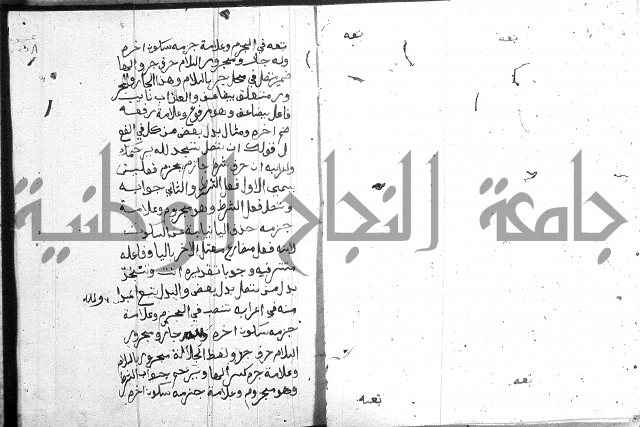 تبعه في الجزم وعلامة جزمه سكون اخره
وله جار ومجرور اللام حرف جر والها
ضمير متصل في محل جر باللام وهذا الجار والمجر
ور متعلق بيضاعف والعذاب نايب
فاعل بيضاعف وهو مرفوع وعلامة رفعه
ضم اخره ومثال بدل بعض من كل في الفعـ
ل قولك ان تصل تسجد لله يرحمك
واعرابه ان حرف شرط جازم يجزم فعلين
يسمى الاول فعل الشرط والثاني جوابه
وتصل فعل الشرط وهو مجزوم وعلامة
جزمه حذف اليا نيابة عن السكون
لانه فعل مضارع معتل الاخر باليا وفاعله
مستتر فيه وجوبا تقديره انت وتسجد
بدل من تصل بدل بعض والبدل يتبع المبدل
منه في اعرابه تبعه في الجزم وعلامة
جزمه سكون اخره ولله جار ومجرور
اللام حرف جر ولفظ الجلالة مجرور باللام
وعلامة جره كسر الها ويرحم جواب الشرط
وهو مجزوم وعلامة جزمه سكون اخره
جامعة النجاح الوطنية